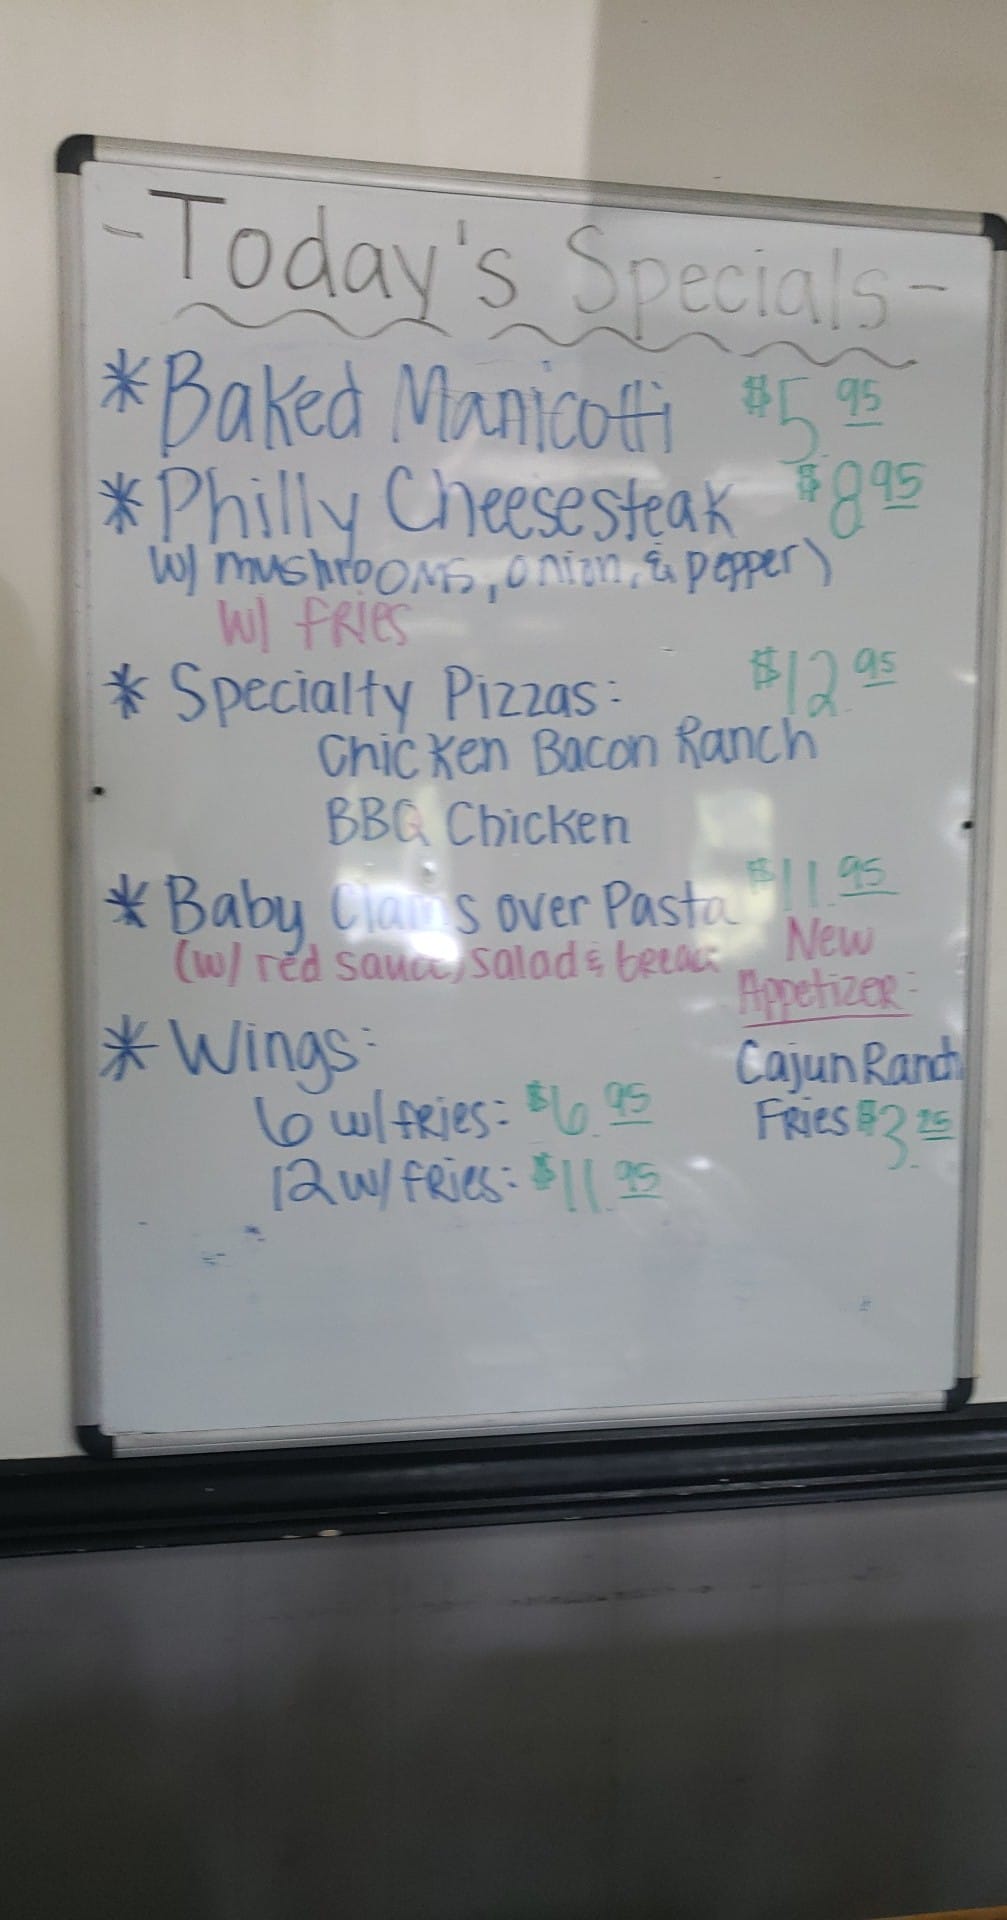 -Today's Specials-
* Baked Manicotti $5.95
* Philly Cheesesteak $8.95
w/ mushrooms, onion, & pepper)
w/ fries
* Specialty Pizzas: $12.95
Chicken Bacon Ranch
BBQ Chicken
* Baby Clams over Pasta $11.95
(w/ red sauce, salad & bread
* Wings:
6 w/fries: $6.95
12 w/ fries: $11.95
New
Appetizer:
Cajun Ranch
Fries $3.